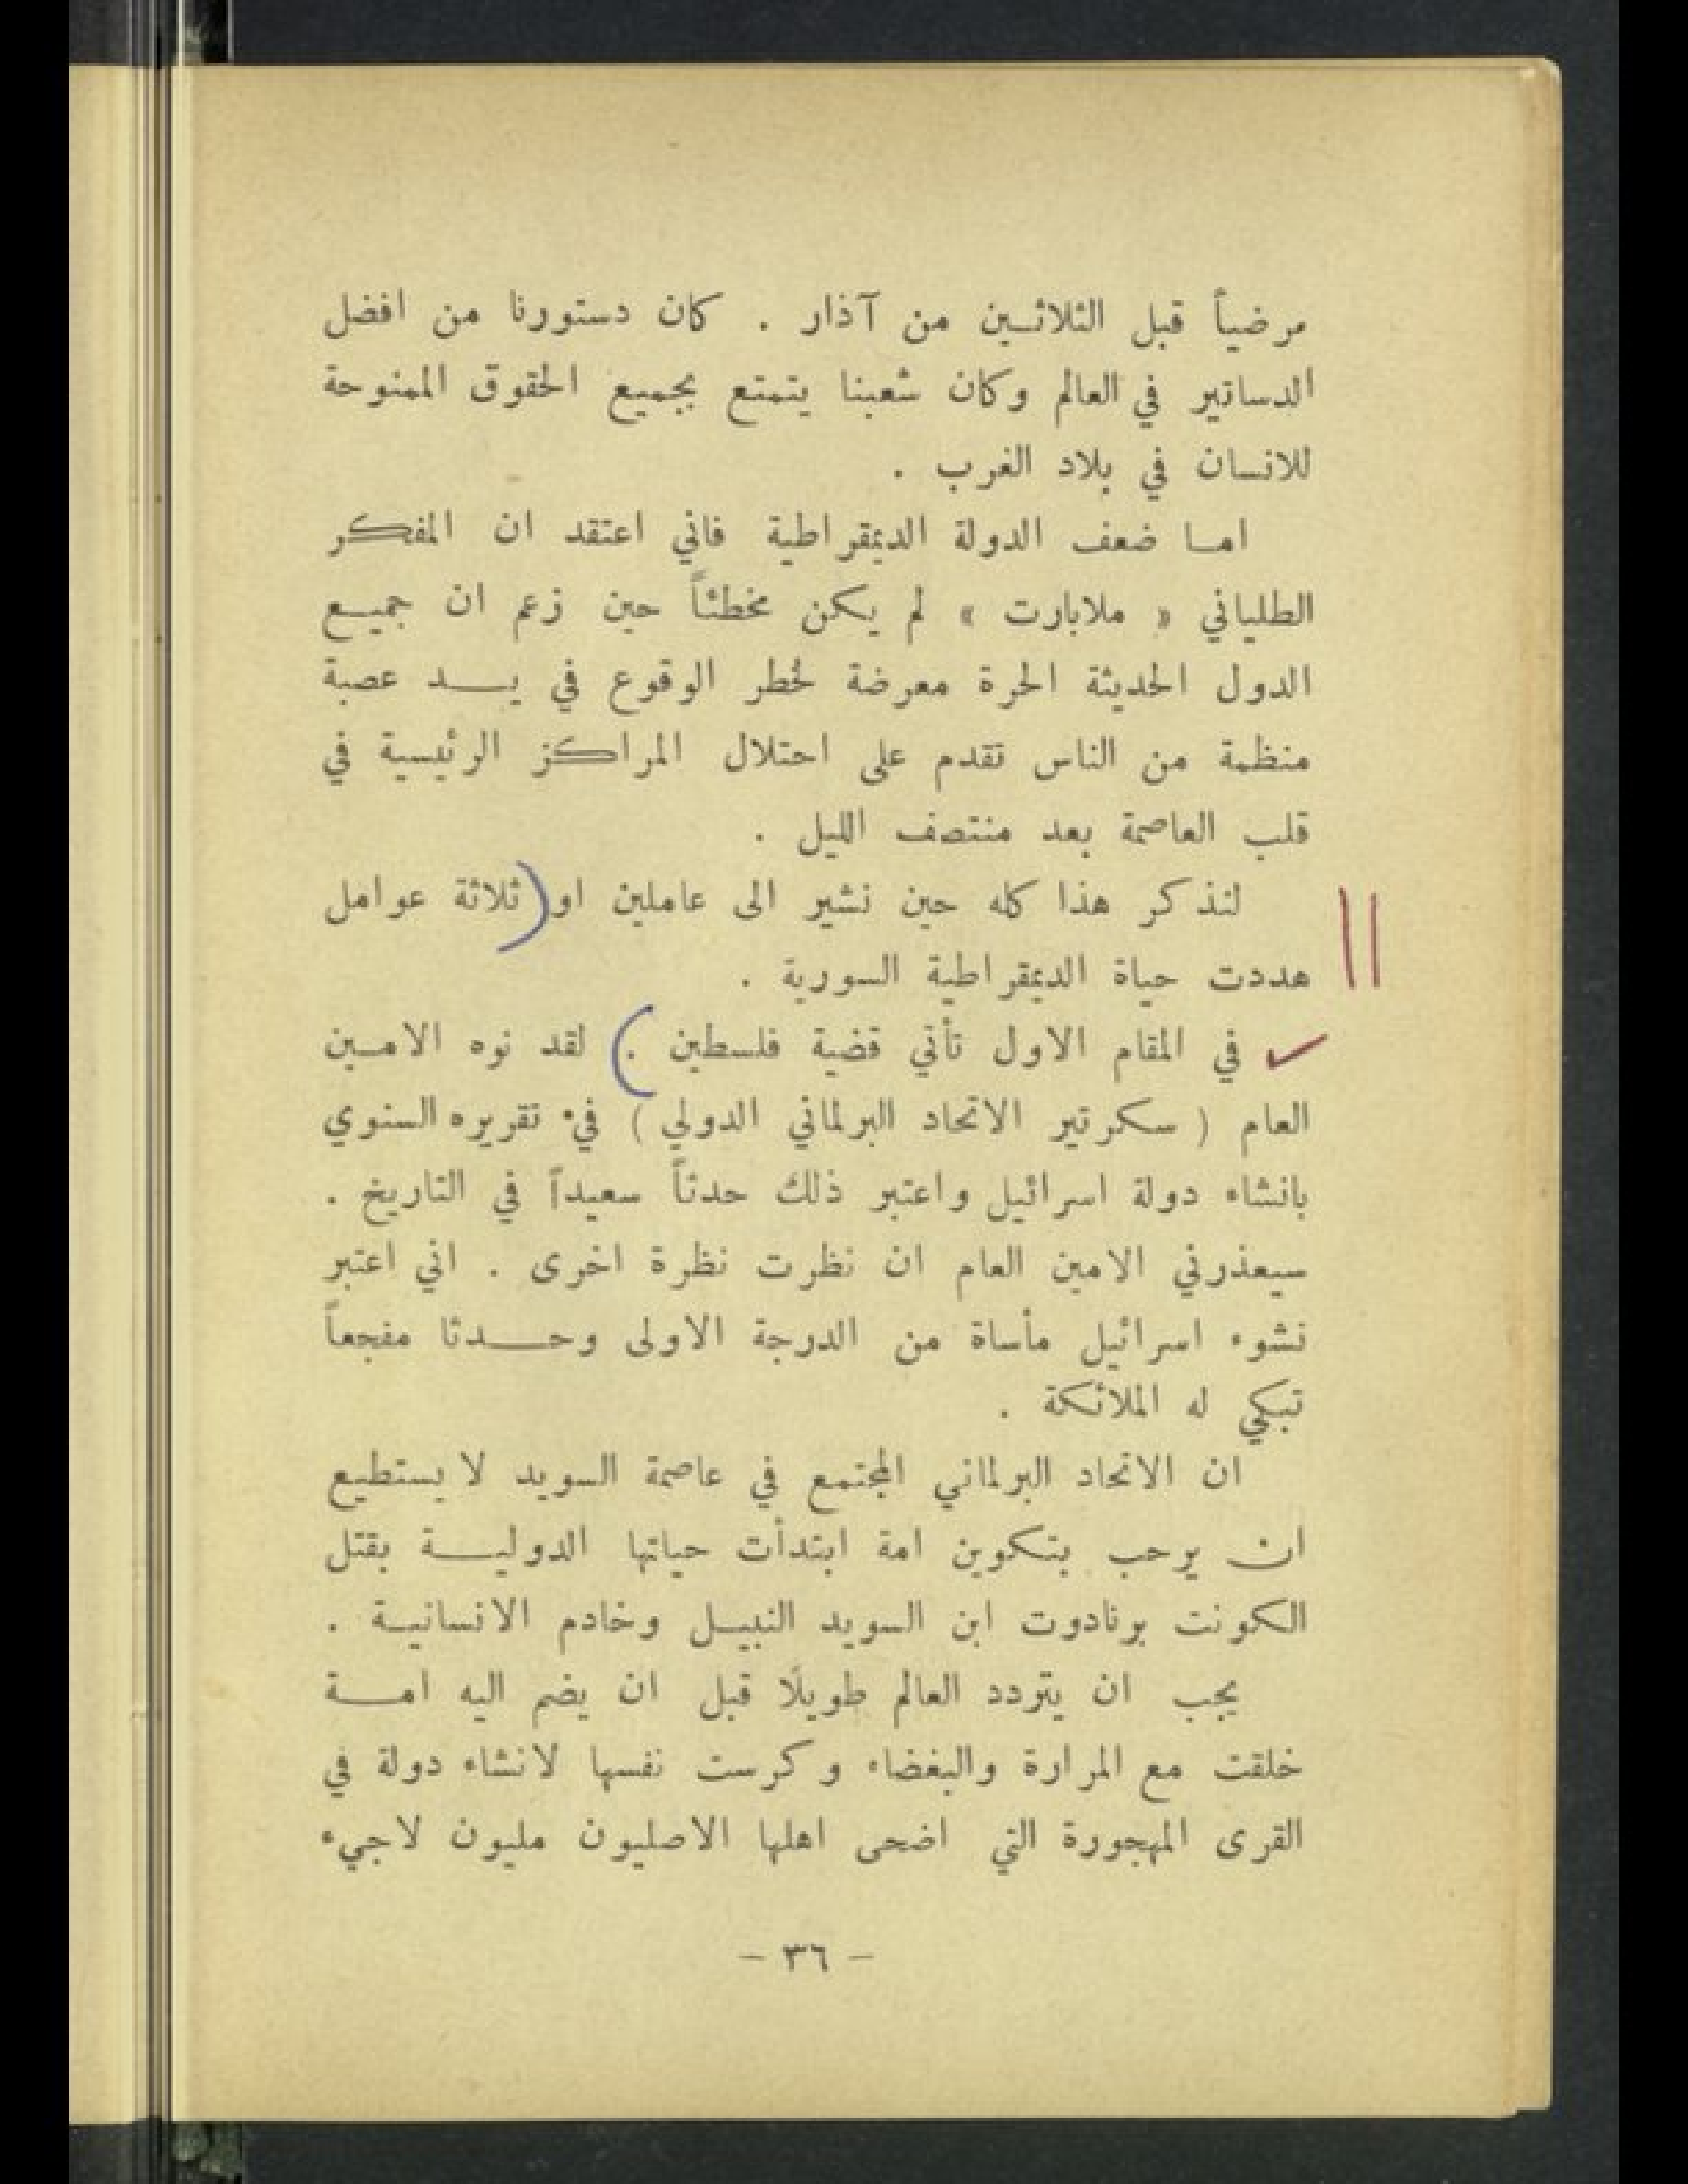 مرضياً قبل الثلاثين من آذار . كان دستورنا من افضل
الدساتير في العالم وكان شعبنا يتمتع بجميع الحقوق الممنوحة
للانسان في بلاد الغرب .
اما ضعف الدولة الديمقراطية فاني اعتقد ان المفكر
الطلياني « ملابارت » لم يكن مخطئاً حين زعم ان جميع
الدول الحديثة الحرة معرضة لخطر الوقوع في يد عصبة
منظمة من الناس تقدم على احتلال المراكز الرئيسية في
قلب العاصمة بعد منتصف الليل .
لنذكر هذا كله حين نشير الى عاملين او ثلاثة عوامل
هددت حياة الديمقراطية السورية .
في المقام الاول تأتي قضية فلسطين . لقد نوه الامين
العام ( سكرتير الاتحاد البرلماني الدولي ) في تقريره السنوي
بانشاء دولة اسرائيل واعتبر ذلك حدثاً سعيداً في التاريخ .
سيعذرني الامين العام ان نظرت نظرة اخرى . اني اعتبر
نشوء اسرائيل مأساة من الدرجة الاولى وحدثا مفجعاً
تبكي له الملائكة .
ان الاتحاد البرلماني المجتمع في عاصمة السويد لا يستطيع
ان يرحب بتكوين امة ابتدأت حياتها الدولية بقتل
الكونت برنادوت ابن السويد النبيل وخادم الانسانية .
يجب ان يتردد العالم طويلًا قبل ان يضم اليه امة
خلقت مع المرارة والبغضاء وكرست نفسها لانشاء دولة في
القرى المهجورة التي اضحى اهلها الاصليون مليون لاجيء
- ٣٦ -